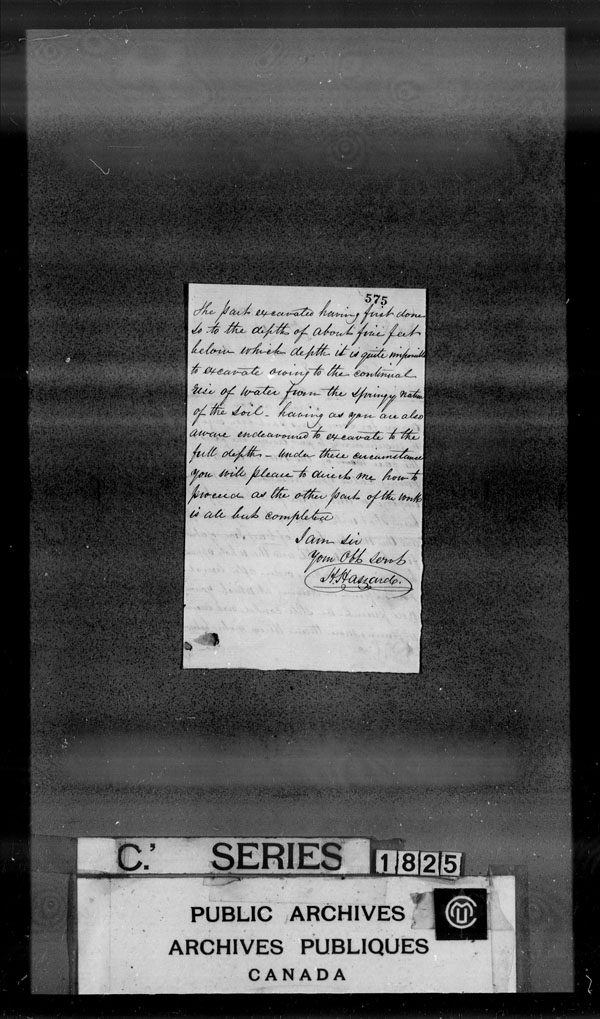 575
The part excavated having first done
so to the depth of about five feet
below which depth it is quite impossible
to excavate owing to the continual
rise of water from the springy nature
of the soil - having as you are also
aware endeavoured to excavate to the
full depth - under these circumstances
you will please to direct me how to
proceed as the other part of the work
is all but completed
I am sir
Your Obt servt
H. Hassard.
C.' SERIES 1825
PUBLIC ARCHIVES
ARCHIVES PUBLIQUES
CANADA